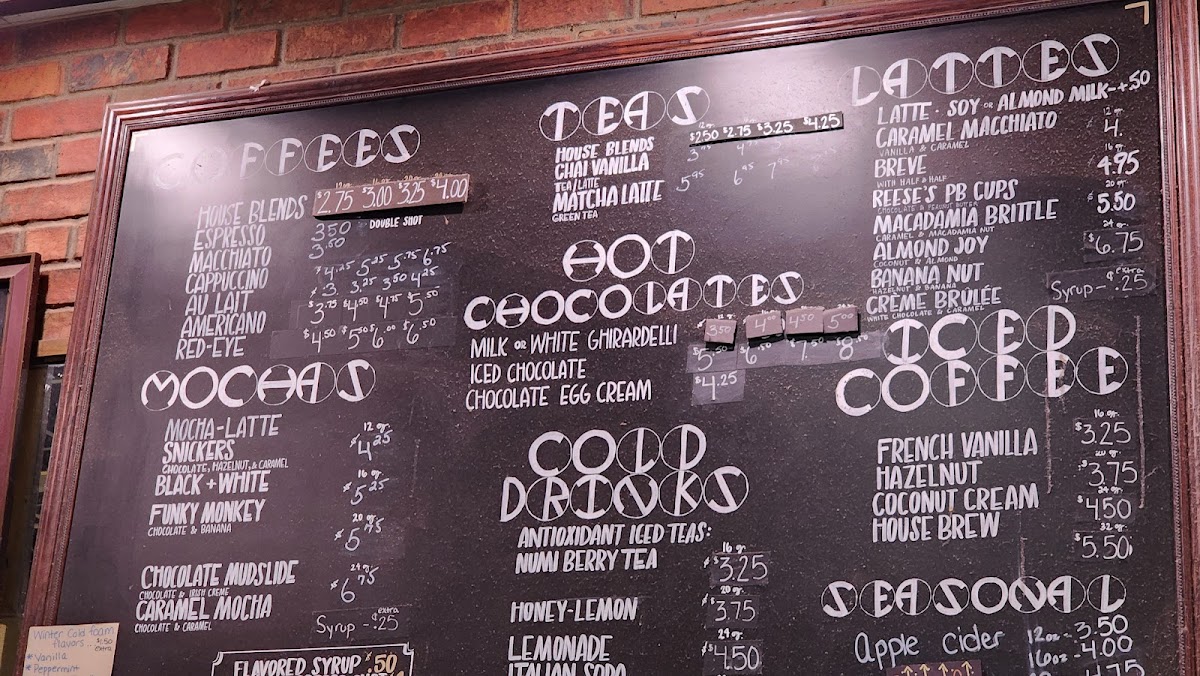 COFFEES
HOUSE BLENDS $2.75 $3.00 $3.25 $4.00
ESPRESSO 350 DOUBLE SHOT
MACCHIATO 3.50
CAPPUCCINO $4.25 5.25 5.75 6.75
AU LAIT 3. 3.25 3.50 4.25
AMERICANO $3.75 $4.50 $4.75 5.50
RED-EYE $4.50 $5.50 $6.00 $6.50
MOCHAS
MOCHA-LATTE 12 oz.
SNICKERS $4.25
CHOCOLATE, HAZELNUT, & CARAMEL
BLACK + WHITE 16 oz. $5.25
FUNKY MONKEY 20 oz.
CHOCOLATE & BANANA $5.75
CHOCOLATE MUDSLIDE 24 oz.
CHOCOLATE & IRISH CREME $6.75
CARAMEL MOCHA
CHOCOLATE & CARAMEL
Syrup - .25 extra
FLAVORED SYRUP .50
Winter Cold foam
flavors - $1.50 extra
* Vanilla
* Peppermint
TEAS
HOUSE BLENDS $2.50 $2.75 $3.25 $4.25
CHAI VANILLA
TEA/LATTE
MATCHA LATTE 5.95 6.95
GREEN TEA
HOT
CHOCOLATES
MILK OR WHITE GHIRARDELLI 350 4 4.50 5.00
ICED CHOCOLATE $5.50 $6.50 $7.50 $8.50
CHOCOLATE EGG CREAM $4.25
COLD
DRINKS
ANTIOXIDANT ICED TEAS:
NUMI BERRY TEA 16 oz. $3.25
HONEY-LEMON 20 oz. $3.75
LEMONADE 24 oz. $4.50
ITALIAN SODA
LATTES
LATTE - SOY OR ALMOND MILK - +.50
CARAMEL MACCHIATO 12 oz. 4.
VANILLA & CARAMEL
BREVE 16 oz. 4.95
WITH HALF & HALF
REESE'S PB CUPS 20 oz.
CHOCOLATE & PEANUT BUTTER $5.50
MACADAMIA BRITTLE 24 oz.
CARAMEL & MACADAMIA NUT
ALMOND JOY $6.75
COCONUT & ALMOND
BANANA NUT
HAZELNUT & BANANA
CRÈME BRULÉE Syrup - .25 extra
WHITE CHOCOLATE & CARAMEL
ICED
COFFEE
FRENCH VANILLA 16 oz. $3.25
HAZELNUT 20 oz. $3.75
COCONUT CREAM 24 oz. $4.50
HOUSE BREW 32 oz. $5.50
SEASONAL
Apple Cider 12oz - 3.50
16oz - 4.00
4.75